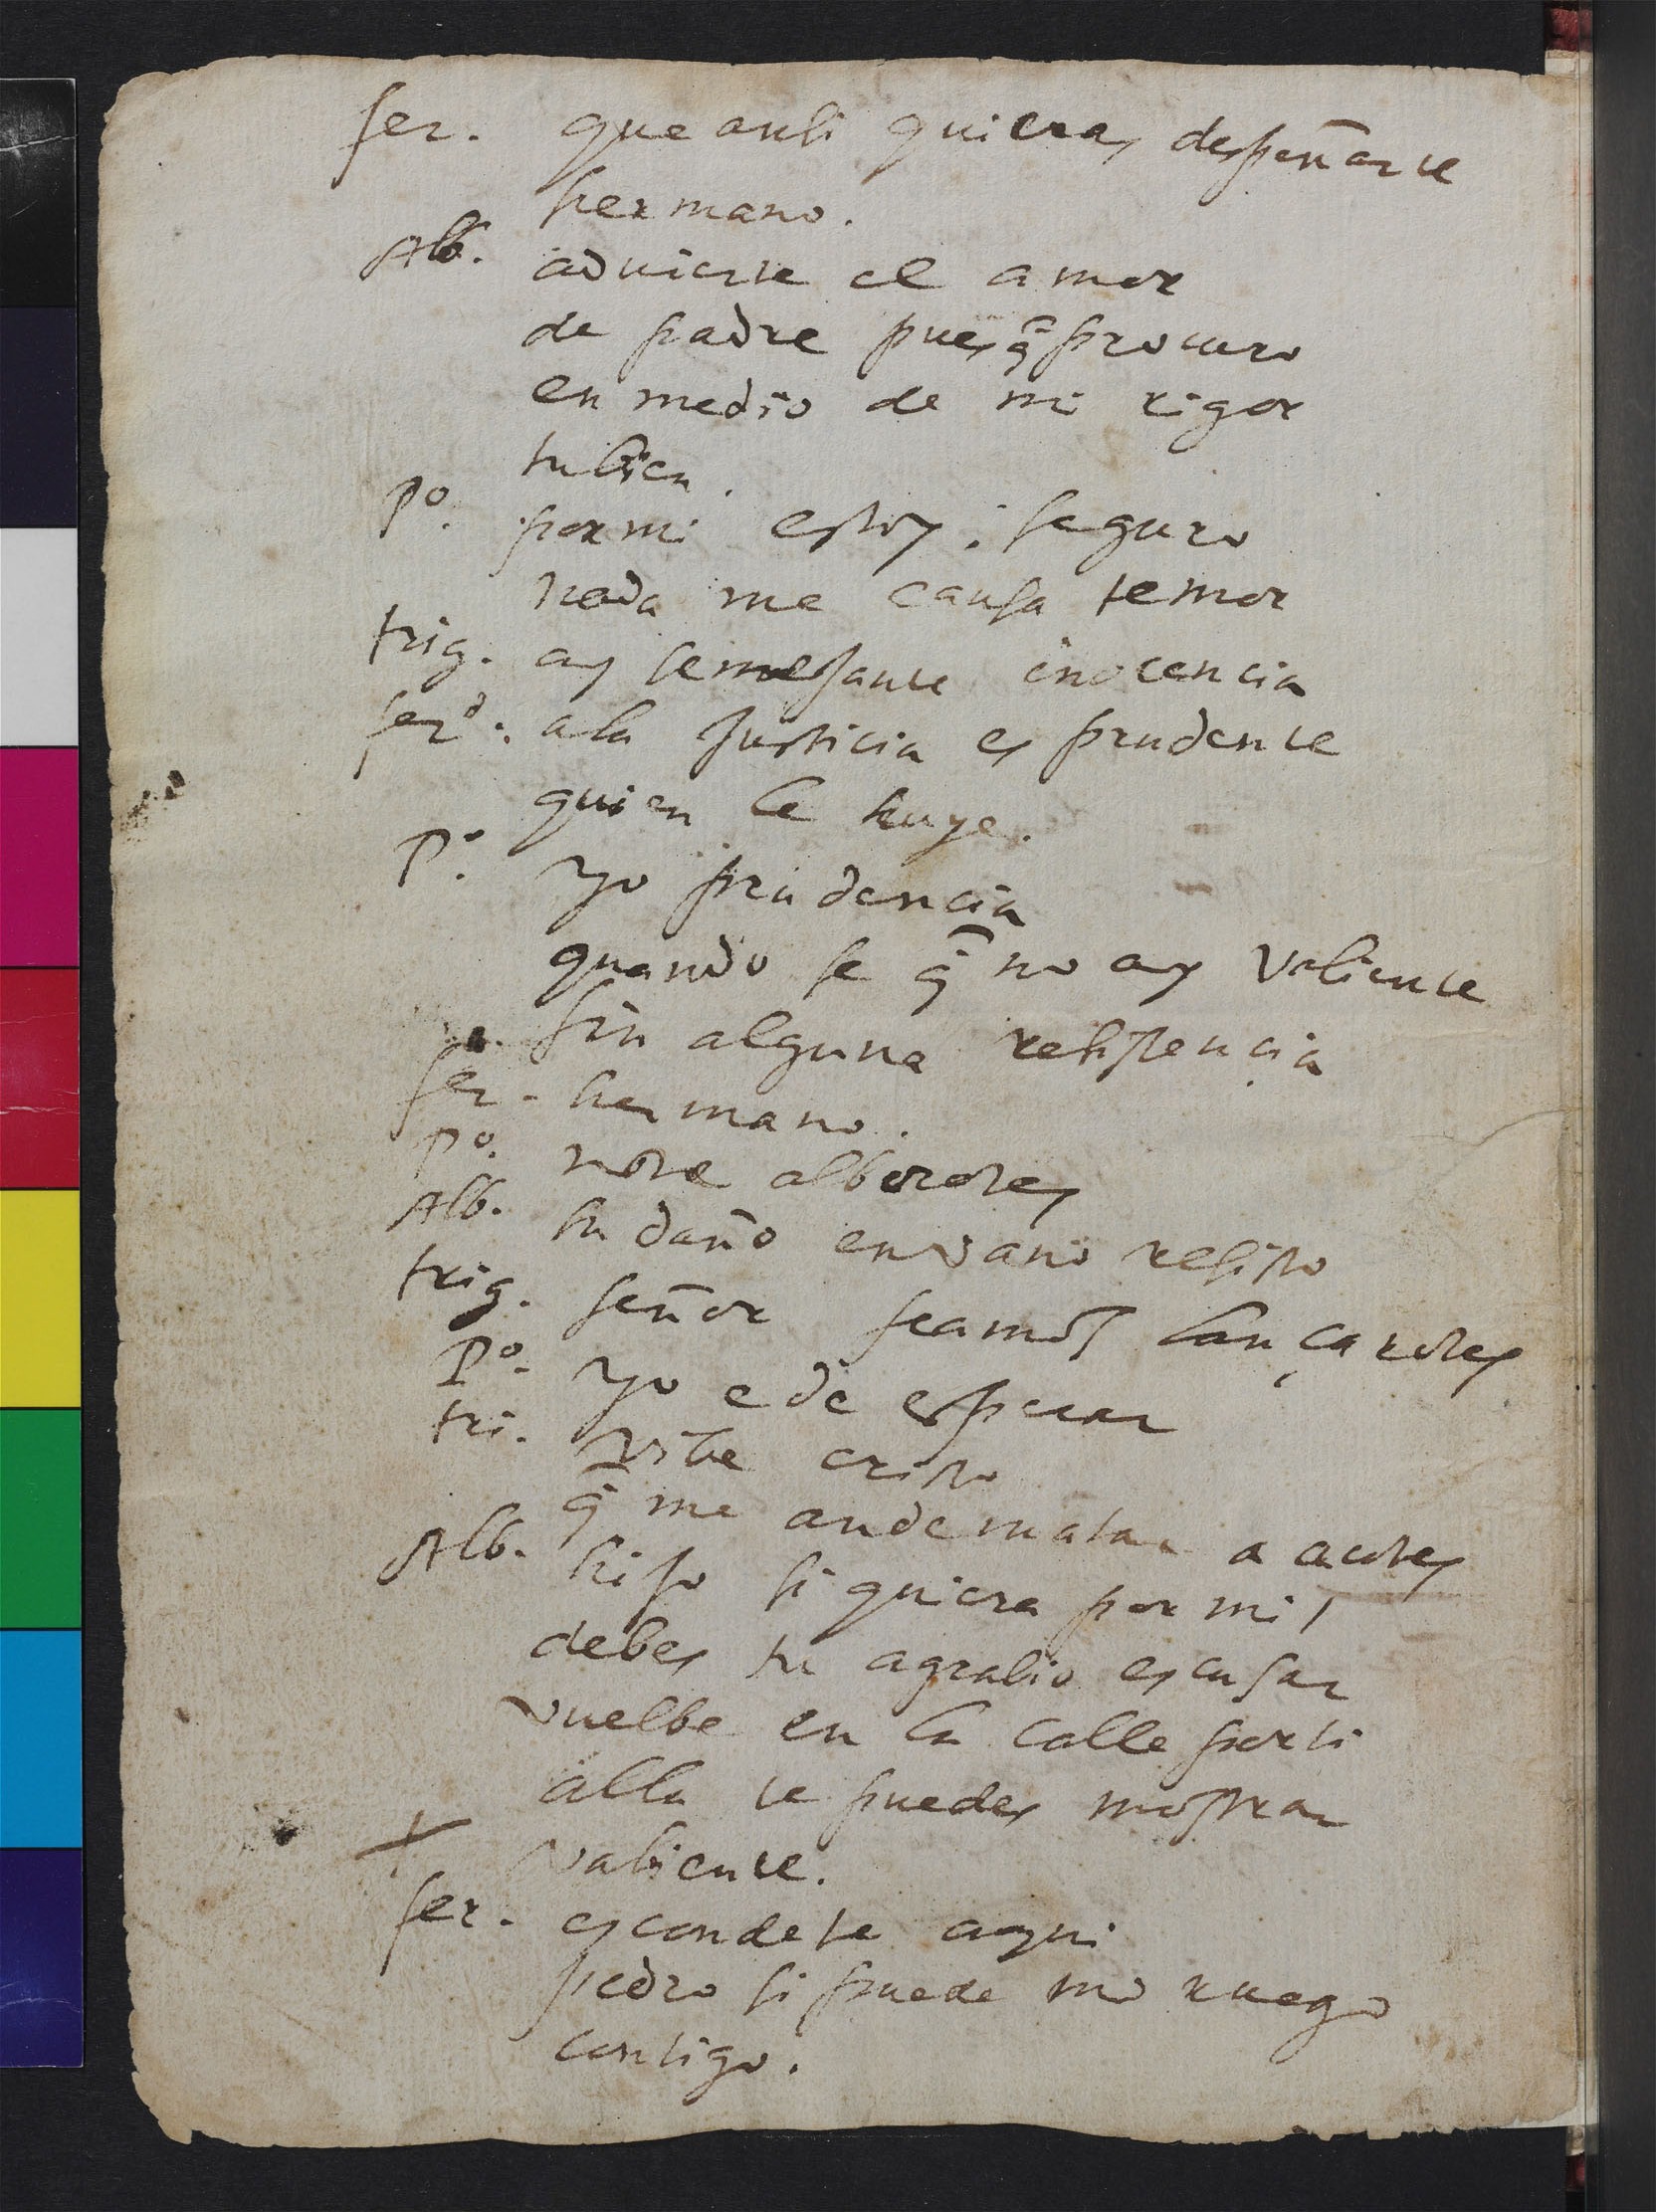 fer. que ansi quieras despeñarte
hermano.
Alb. advierte el amor
de padre pues q̃ procuro
en medio de mi rigor
tu bien.
Po. por mi estoy seguro
nada me causa temor
trig. ay semejante inocencia
ferd. a la Justicia es prudente
quien le huye.
Po. yo prudencia
quando se q̃ no ay valiente
sin alguna resistencia
fer. hermano.
Po. note alborotes
Alb. su daño en vano resisto
trig. señor seamos lançarotes
Po. yo e de esperar
tri. vibe cristo
q̃ me an de matar a acotes
Alb. hijo si quiera por mi
debes tu agrabio escusar
vuelbe en la calle por ti
alla te puedes mostrar
valiente.
fer. escondete aqui
pedro si puede mi ruego
contigo.